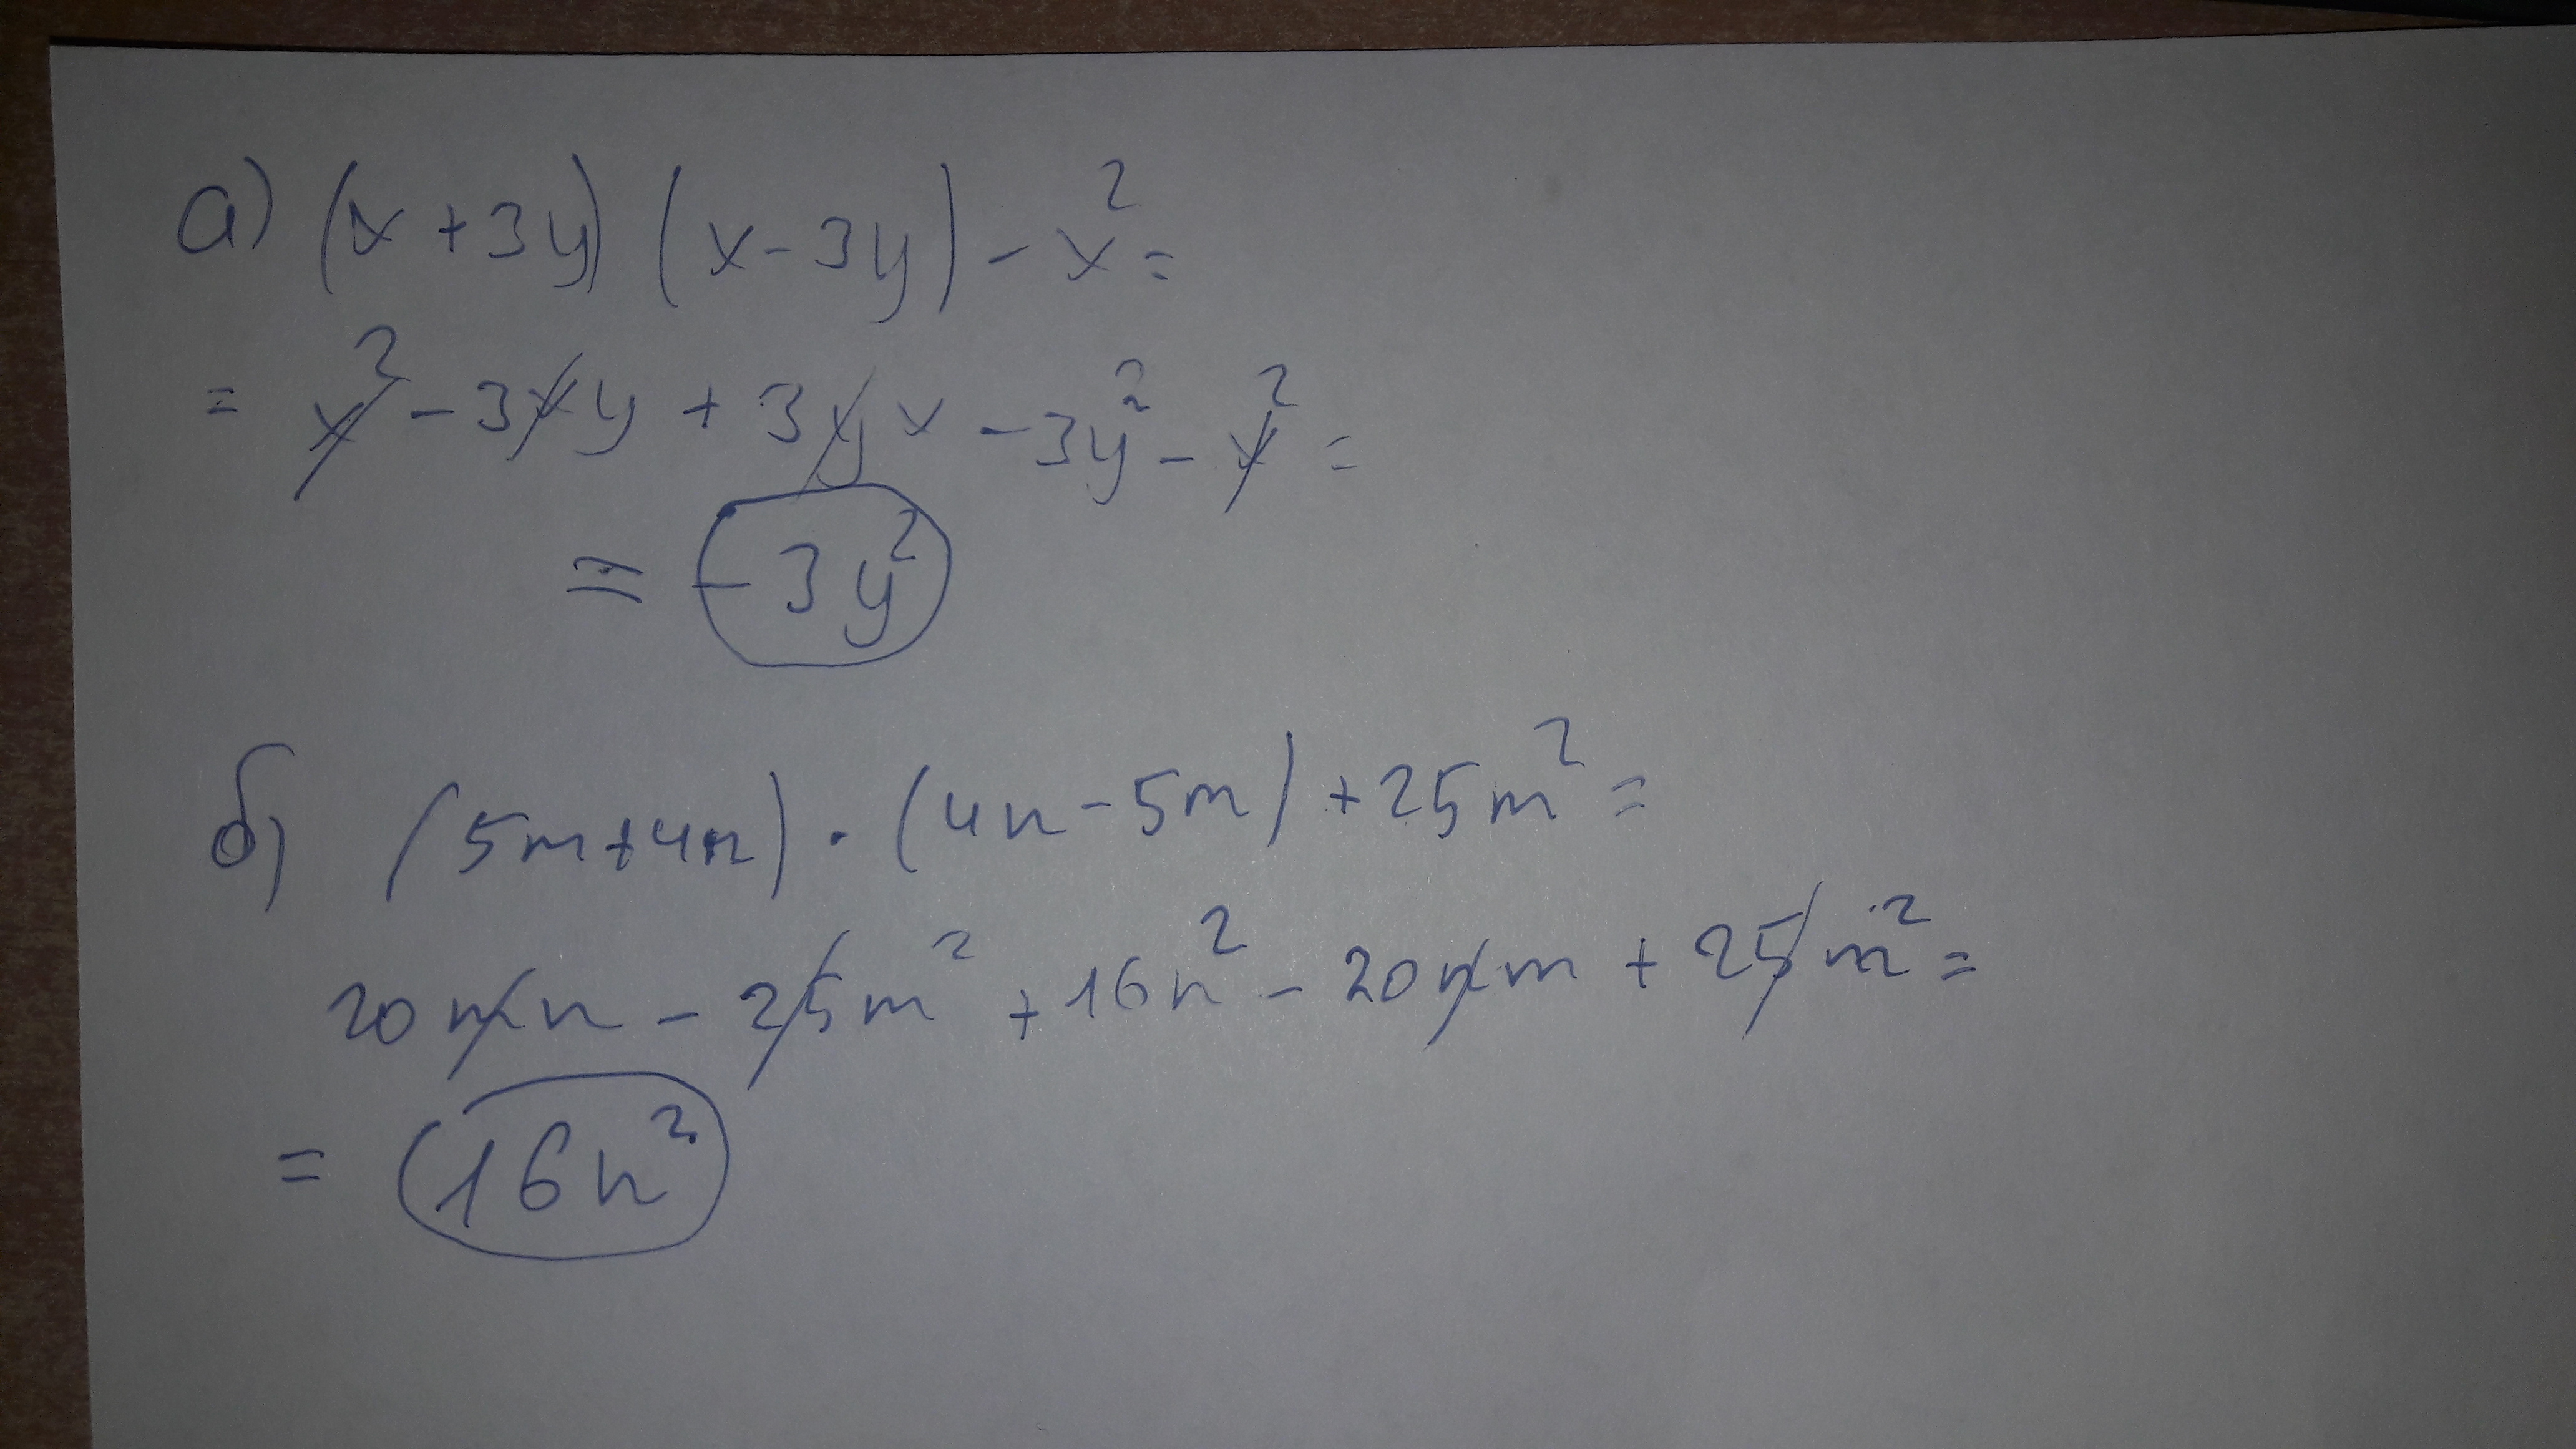 а) (x + 3y) (x - 3y) - x² =
= x² - 3xy + 3yx - 3y² - x² =
= - 3y²
б) (5m + 4n) · (4n - 5m) + 25m² =
20mn - 25m² + 16n² - 20nm + 25m² =
= 16n²